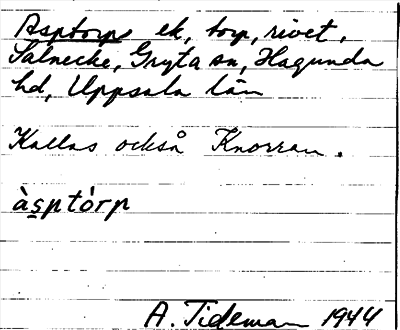 Asptorps ek, torp, rivet,
Salnecke, Gryta sn, Hagunda
hd, Uppsala län
Kallas också Knorran.
àsptórp
A. Tideman 1944